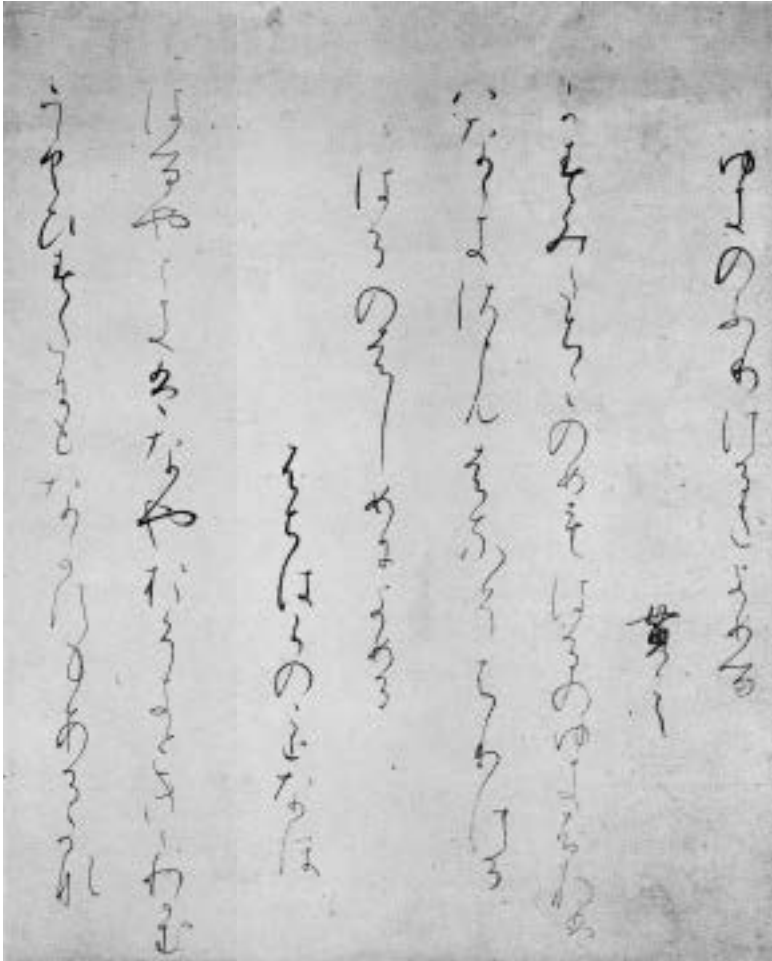 ゆきのふりけるをよめる
貫之
かすみたちこのめもはるのゆきふれは
はなゝきさともはなそちりける
はるのはしめによめる
ふちはらのことなほ
はるやときはなやおそきとききわかむ
うくひすたにもなかすもあるかな